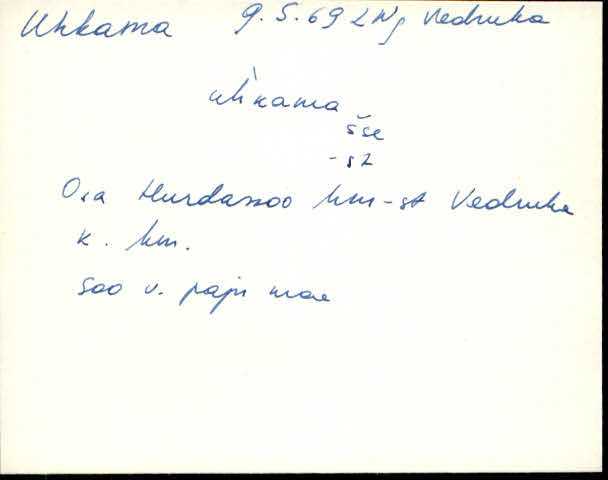 Uhkama 9.5.69 LNg Vedruka
uhkama
šse
-st
Osa Hurdasoo hm-st Vedruka
k. hm.
Soo v. paju mae